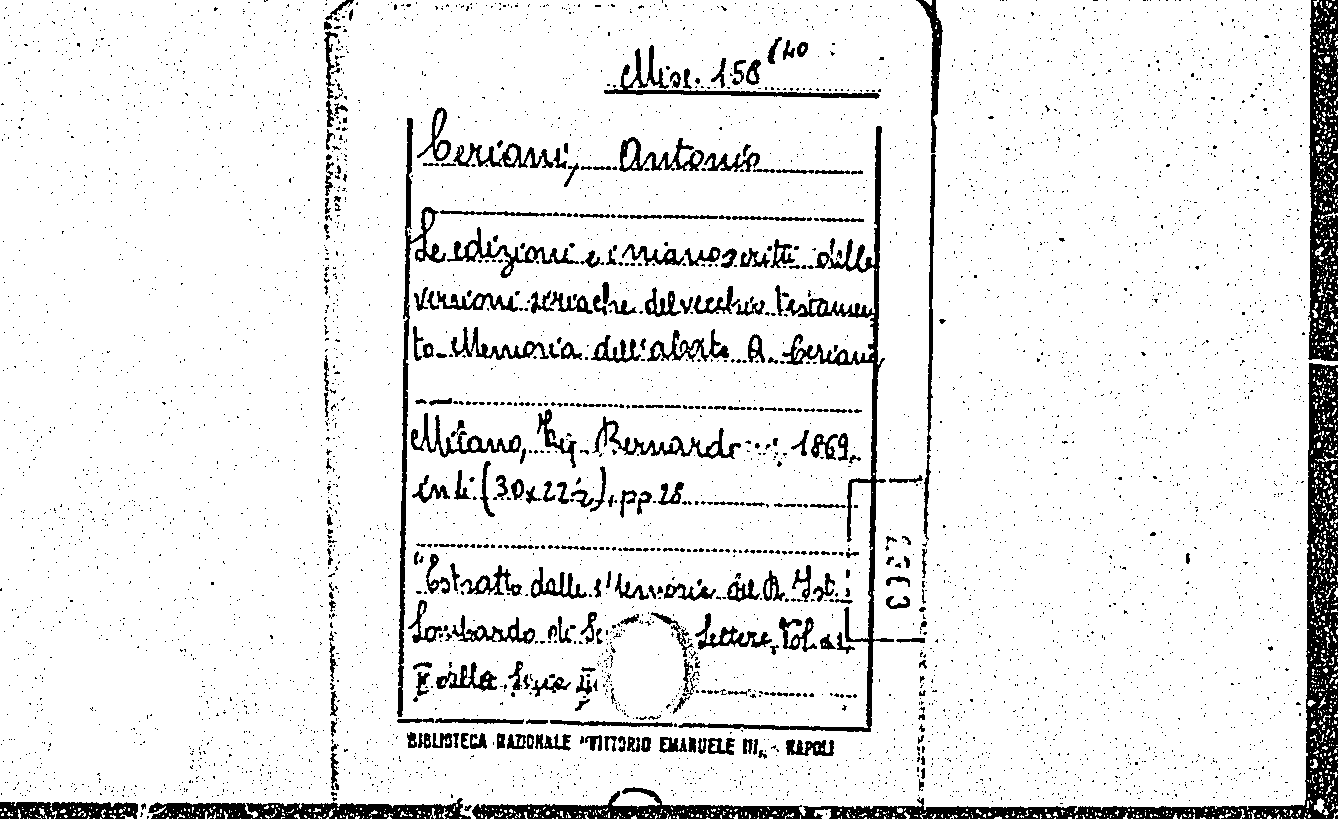 Misc. 158 (40
Ceriani, Antonio
Le edizioni e i manoscritti delle
versioni siriache del vecchio testamen
to. Memoria dell'abate A. Ceriani
Milano, Tip. Bernardoni, 1869,
in 4° (30x22½), pp. 28
"Estratto dalle Memorie del R. Ist.
Lombardo di Lettere, Vol.
dalla Serie II
BIBLIOTECA NAZIONALE "VITTORIO EMANUELE III„ - NAPOLI